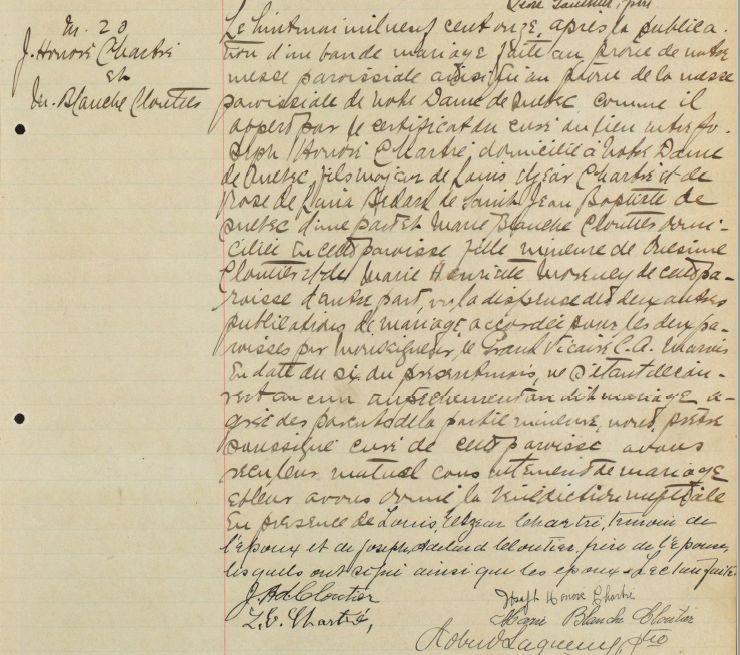 M. 20
J. Honoré Chartré
et
M. Blanche Cloutier
Le huit mai mil neuf cent onze, après la publica-
tion d'un ban de mariage faite au prône de notre
messe paroissiale aussi qu'au prône de la messe
paroissiale de Notre Dame de Québec comme il
appert par le certificat du curé du lieu entre Jo-
seph Honoré Chartré domicilié à Notre Dame
de Québec, fils majeur de Louis Elzéar Chartré et de
Rose de Lima Bédard de Saint Jean Baptiste de
Québec d'une part et Marie Blanche Cloutier domi-
ciliée en cette paroisse fille mineure de Onésime
Cloutier et de Marie Henriette de cette pa-
roisse d'autre part, vu la dispense des deux autres
publications de mariage accordée pour les deux pa-
roisses par Monseigneur le Grand Vicaire C. A. Marois
en date du six du présent mois, ne s'étant décou-
vert aucun empêchement au dit mariage, a-
gréé des parents de la partie mineure, nous, prêtre
soussigné curé de cette paroisse avons
reçu leur mutuel consentement de mariage
et leur avons donné la bénédiction nuptiale
en présence de Louis Elzéar Chartré, témoin de
l'époux et de Joseph Adélard Cloutier, frère de l'épouse,
lesquels ont signé ainsi que les époux. Lecture faite.
J. Ad. Cloutier
Joseph Honoré Chartré
L. E. Chartré,
Marie Blanche Cloutier